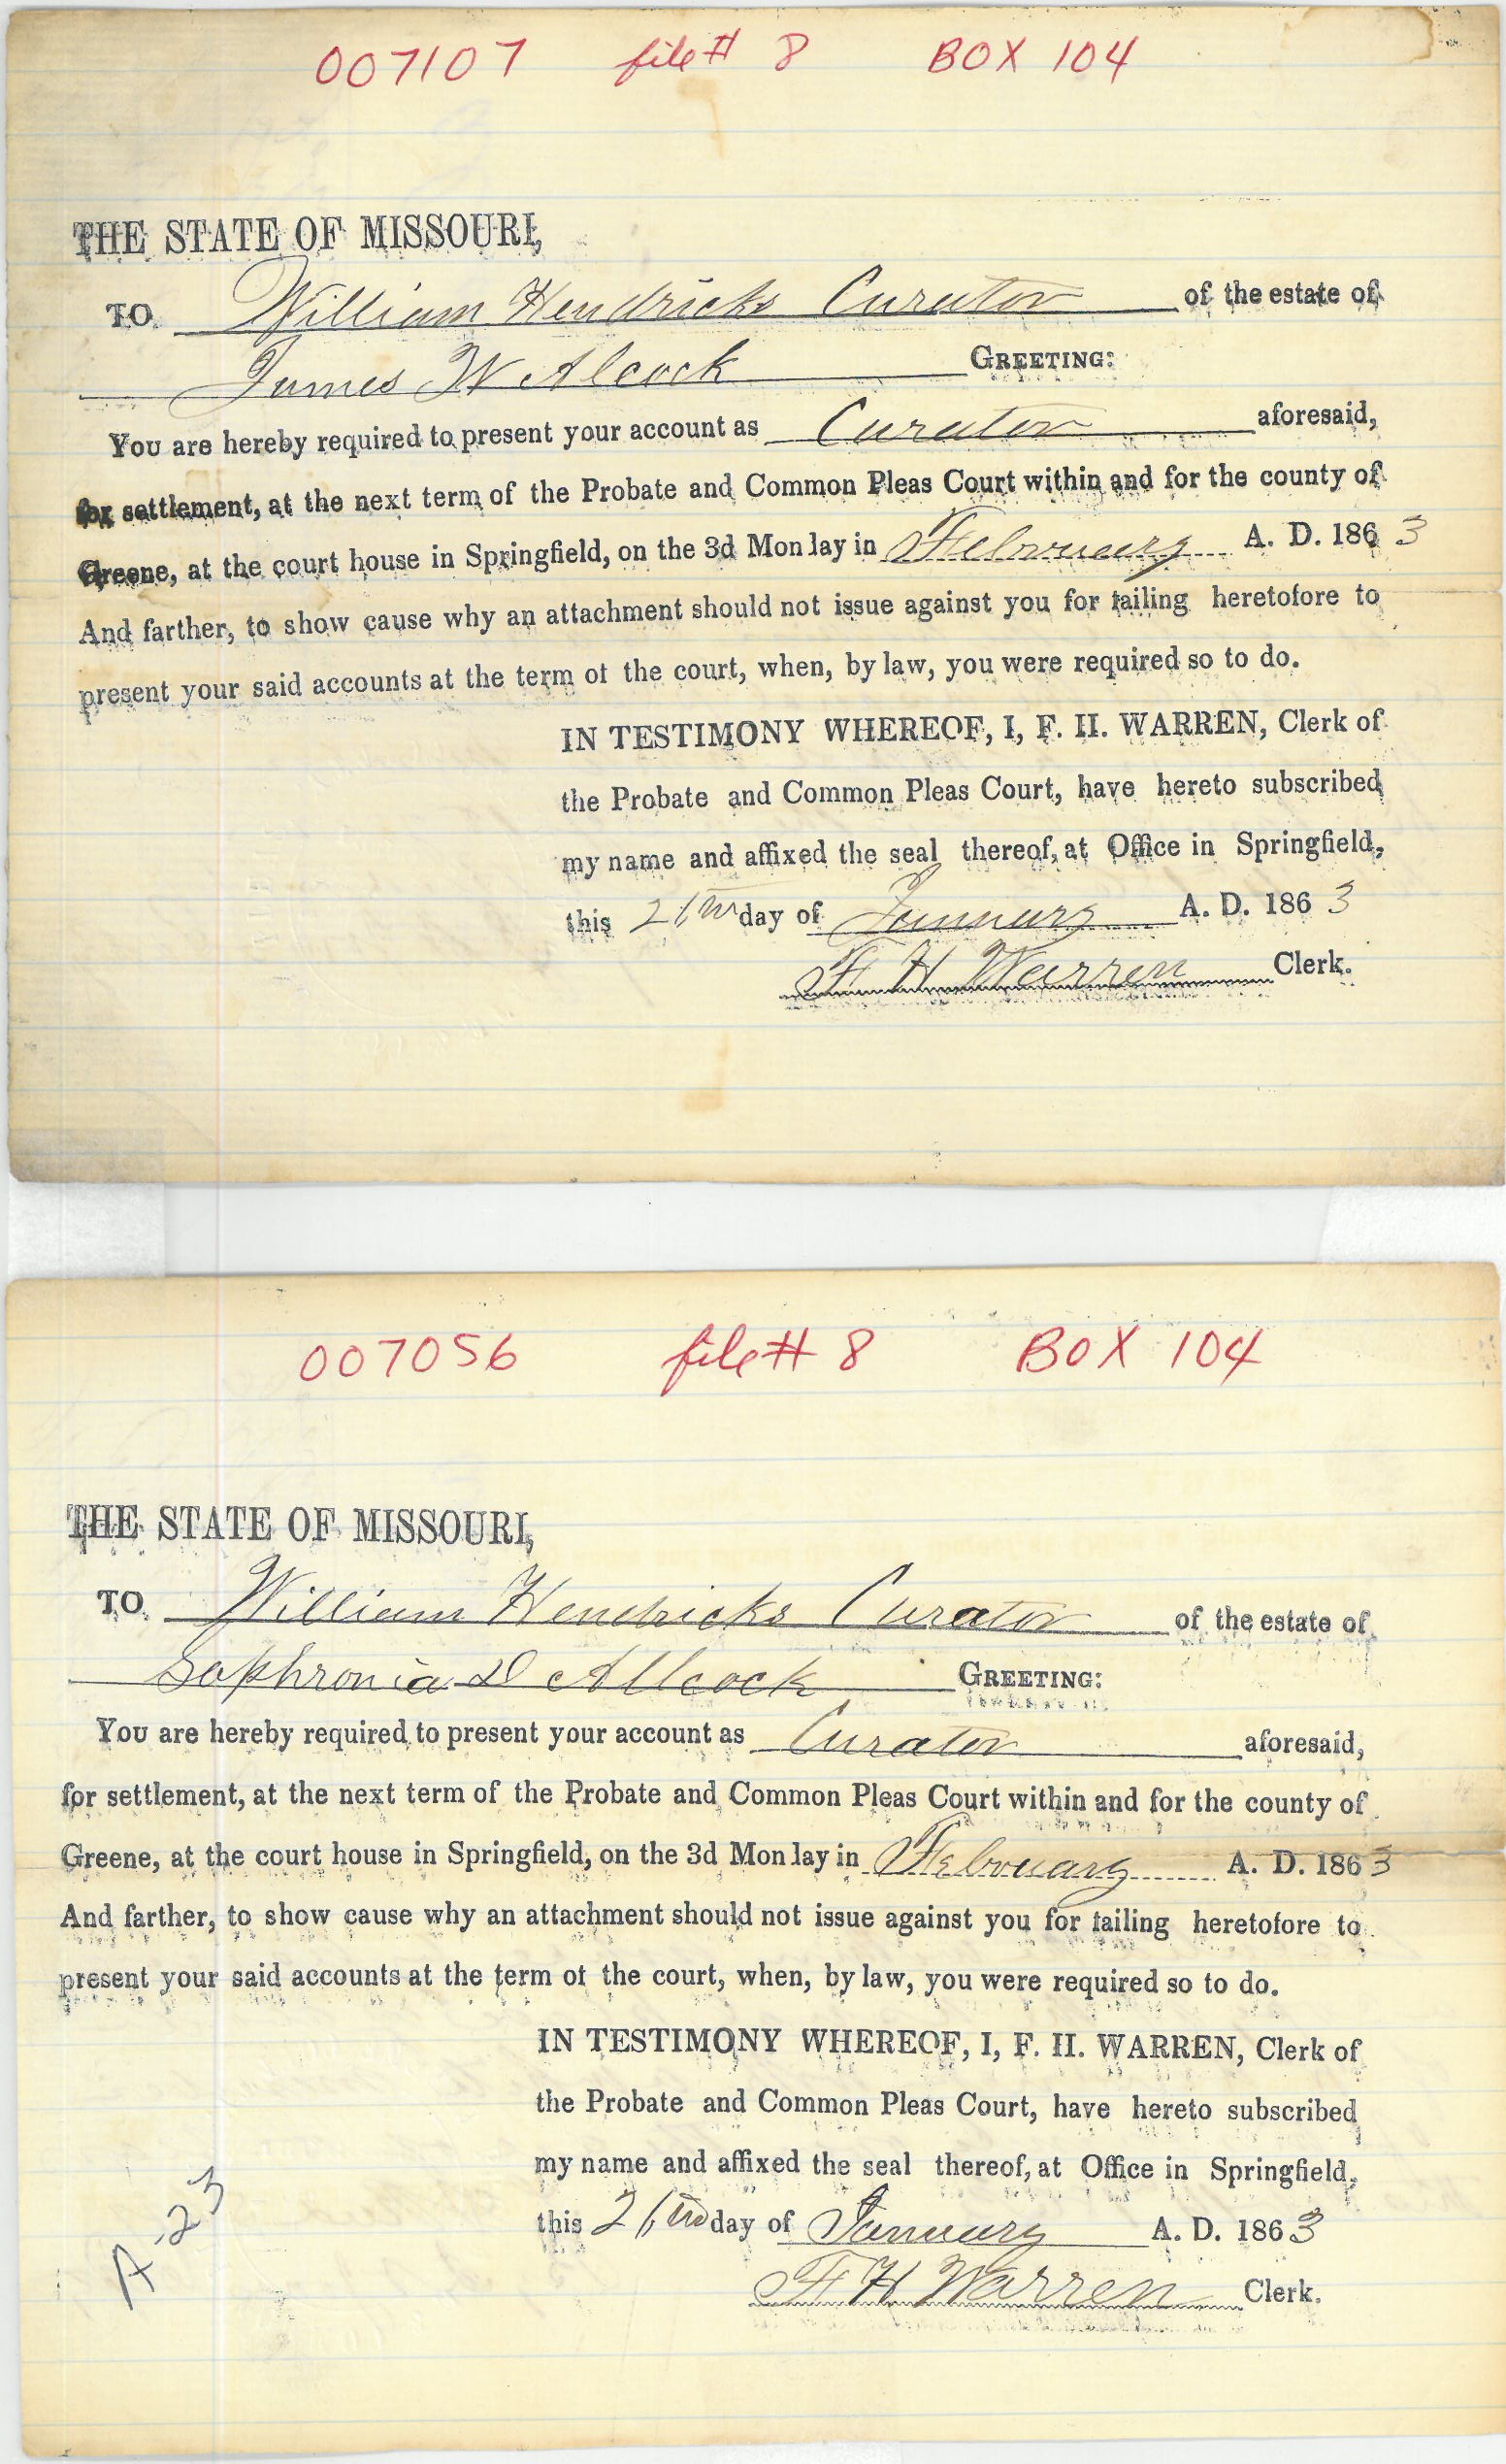 007107 file # 8 BOX 104
THE STATE OF MISSOURI,
TO William Hendricks Curator of the estate of
James W Alcock GREETING:
You are hereby required to present your account as Curator aforesaid,
for settlement, at the next term of the Probate and Common Pleas Court within and for the county of
Greene, at the court house in Springfield, on the 3d Mon lay in February A. D. 1863
And farther, to show cause why an attachment should not issue against you for failing heretofore to
present your said accounts at the term of the court, when, by law, you were required so to do.
IN TESTIMONY WHEREOF, I, F. H. WARREN, Clerk of
the Probate and Common Pleas Court, have hereto subscribed
my name and affixed the seal thereof, at Office in Springfield,
this day of January A. D. 1863
F H Warren Clerk.
007056 file # 8 BOX 104
THE STATE OF MISSOURI,
TO William Hendricks Curator of the estate of
Sophronia D Allcock GREETING:
You are hereby required to present your account as Curator aforesaid,
for settlement, at the next term of the Probate and Common Pleas Court within and for the county of
Greene, at the court house in Springfield, on the 3d Mon lay in February A. D. 1863
And farther, to show cause why an attachment should not issue against you for failing heretofore to
present your said accounts at the term of the court, when, by law, you were required so to do.
IN TESTIMONY WHEREOF, I, F. H. WARREN, Clerk of
the Probate and Common Pleas Court, have hereto subscribed
my name and affixed the seal thereof, at Office in Springfield,
this day of January A. D. 1863
F H Warren Clerk.
A-23